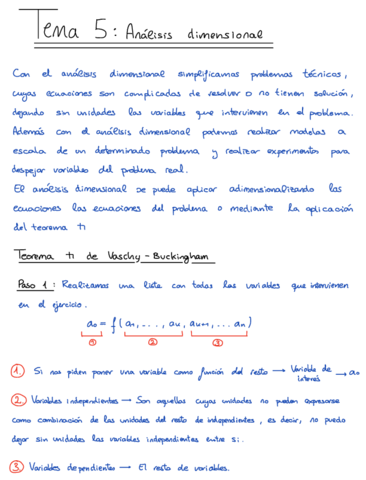 Tema 5: Análisis dimensional
Con el análisis dimensional simplificamos problemas técnicos,
cuyas ecuaciones son complicadas de resolver o no tienen solución,
dejando sin unidades las variables que intervienen en el problema.
Además con el análisis dimensional podemos realizar modelos a
escala de un determinado problema y realizar experimentos para
despejar variables del problema real.
El análisis dimensional se puede aplicar adimensionalizando las
ecuaciones las ecuaciones del problema o mediante la aplicación
del teorema π
Teorema π de Vaschy-Buckingham
Paso 1: Realizamos una lista con todas las variables que intervienen
en el ejercicio.
a₀ = f(a₁, ..., aᵤ, aᵤ₊₁, ... aₙ)
① ② ③
① Si nos piden poner una variable como función del resto → Variable de interés → a₀
② Variables independientes → Son aquellas cuyas unidades no pueden expresarse
como combinación de las unidades del resto de independientes, es decir, no puedo
dejar sin unidades las variables independientes entre sí.
③ Variables dependientes → El resto de variables.